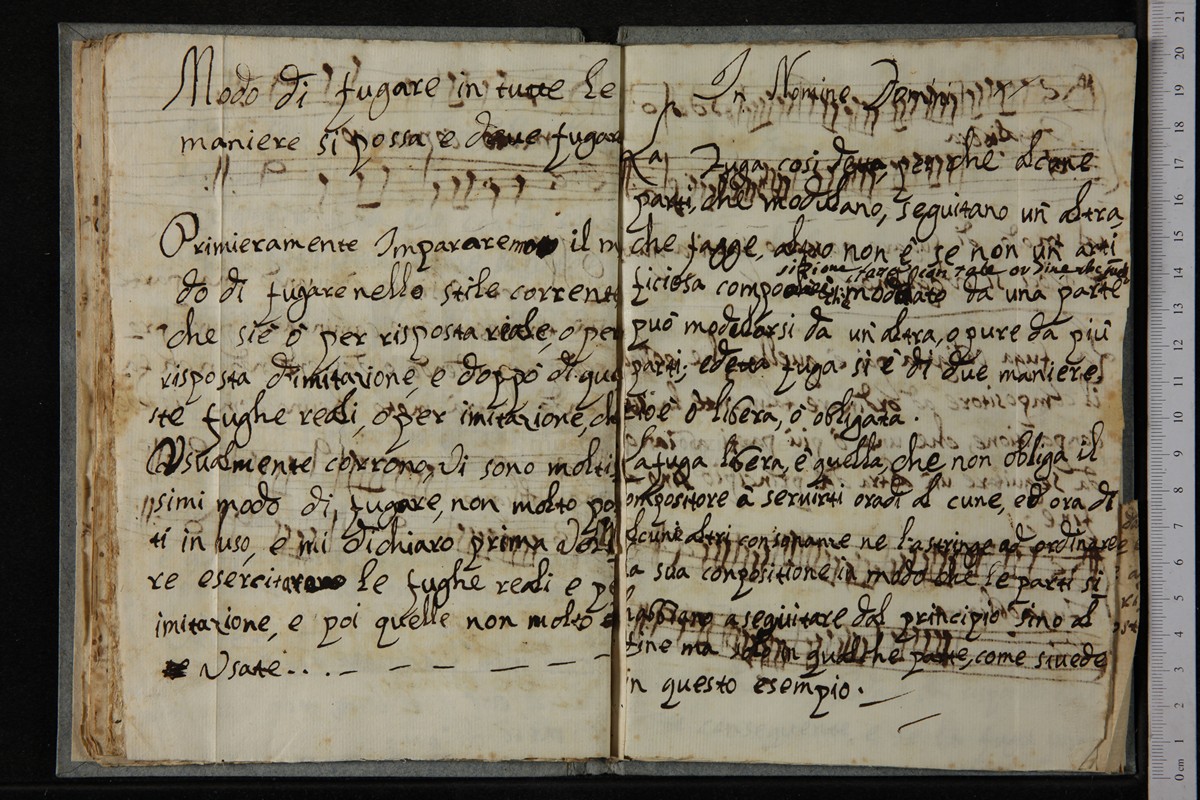 Modo di fugare in tutte le
maniere si possa e deve fugare
Primieramente Impararemo il m
do di fugare nello stile corrente
che sie ò per risposta reale, o per
risposta d'imitazione, e doppò di que
ste fughe reali, ò per imitazione, ch
Usualmente corrono, vi sono molti
ssimi modo di, fugare, non molto po
ti in uso, e mi dichiaro prima
re esercitare le fughe reali e pe
imitazione, e poi quelle non molto
Usate....
In Nomine Domini
La Fuga cosi detta perche alcune
parti, che modulano, seguitano un'altra,
che fugge, altro non è se non un'arti
ficiosa compo sizione
può modularsi da un'altra, o pure da più
parti; e detta fuga si è di due maniere,
cioè ò libera, ò obligata.
La fuga libera, è quella, che non obliga il
ompositore à servirsi ora di al cune, ed ora di
lcune altri consonanze ne l'astringe ad ordinare
a sua compositione in modo che le parti si
habbiano a seguitare dal principio sino al
fine ma solo in qualche parte, come si vede
n questo esempio.
0 cm 1 2 3 4 5 6 7 8 9 10 11 12 13 14 15 16 17 18 19 20 21